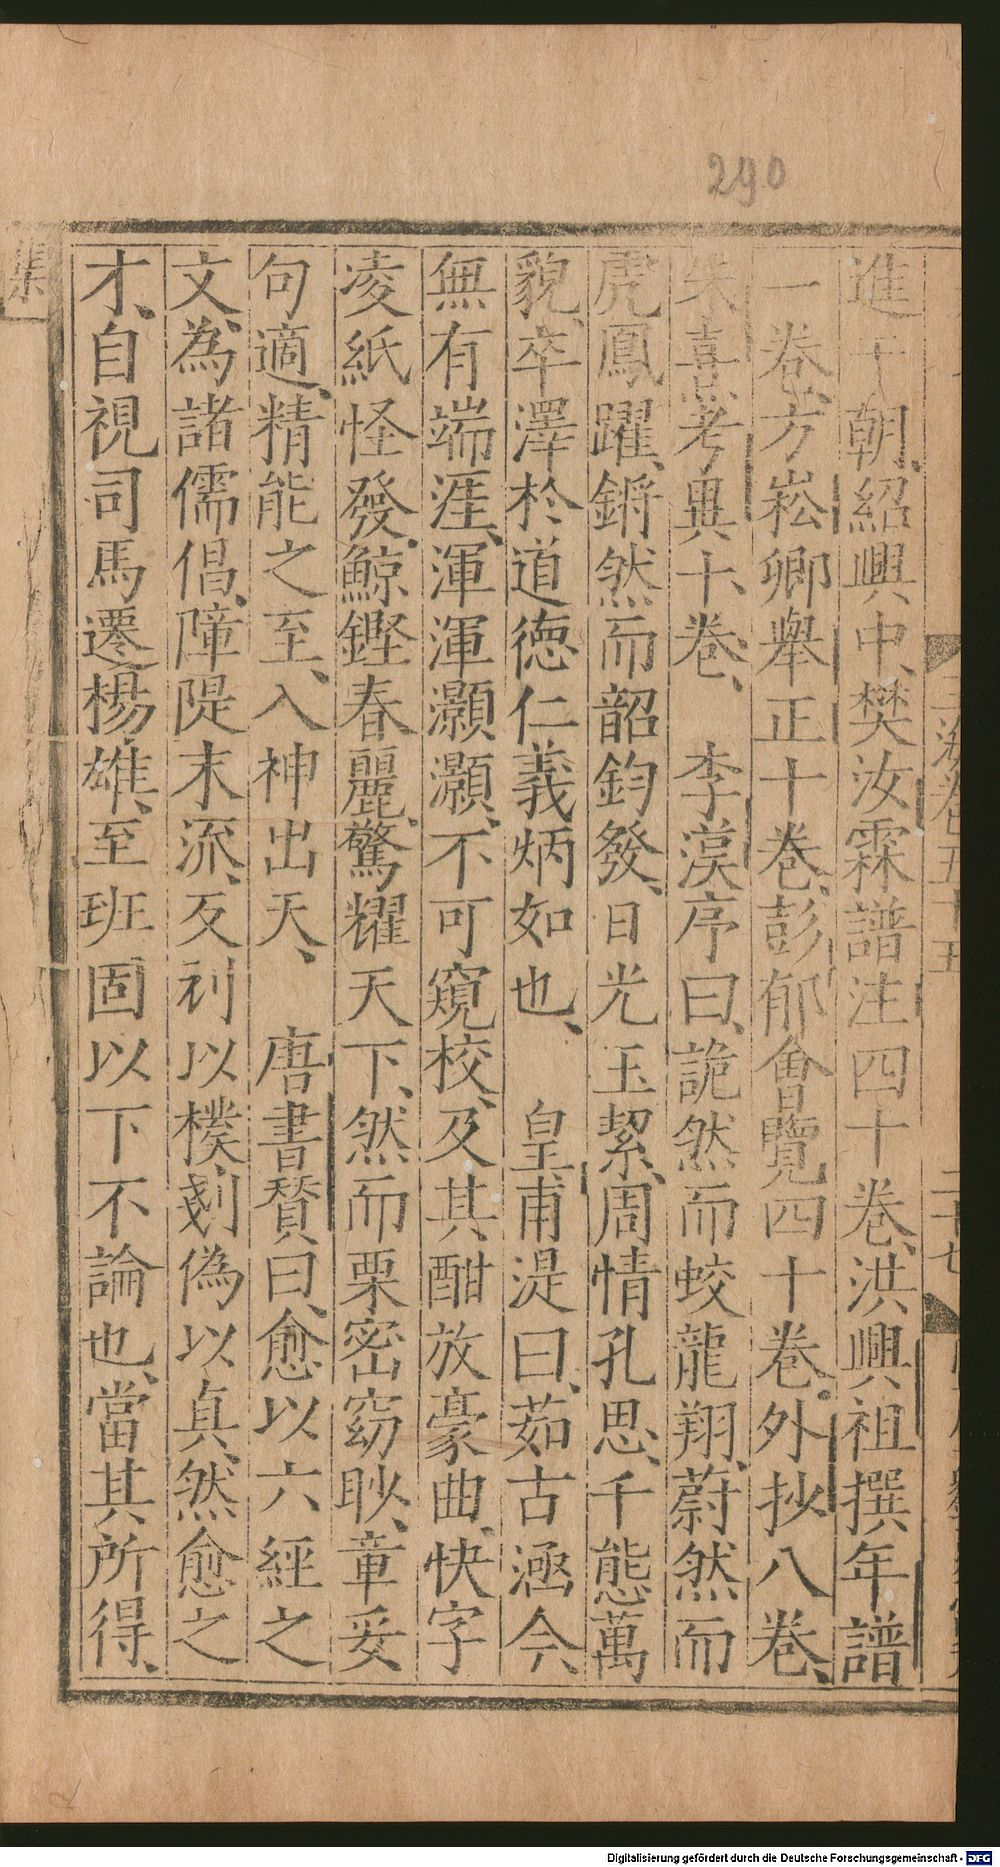 290
進于 朝、紹興中、樊汝霖譜注四十卷、洪興祖撰年譜
一卷、方崧卿舉正十卷、彭郁會覽四十卷。外抄八卷、
朱熹考異十卷、 李漢序曰、詭然而蛟龍翔、蔚然而
虎鳳躍、鏘然而韶鈞發、日光玉絜、周情孔思、千態萬
貌、卒澤於道德仁義炳如也、 皇甫湜曰、茹古涵今、
無有端涯、渾渾灝灝、不可窺校、及其酣放豪曲、快字
凌紙怪發、鯨鏗春麗、驚耀天下、然而栗密窈眇、章妥
句適、精能之至、入神出天、 唐書贊曰、愈以六經之
文、為諸儒倡、障隄末流、反刓以樸、剗偽以真、然愈之
才、自視司馬遷楊雄、至班固以下不論也、當其所得、
集
玉海卷五十五
二十七
Digitalisierung gefördert durch die Deutsche Forschungsgemeinschaft - DFG